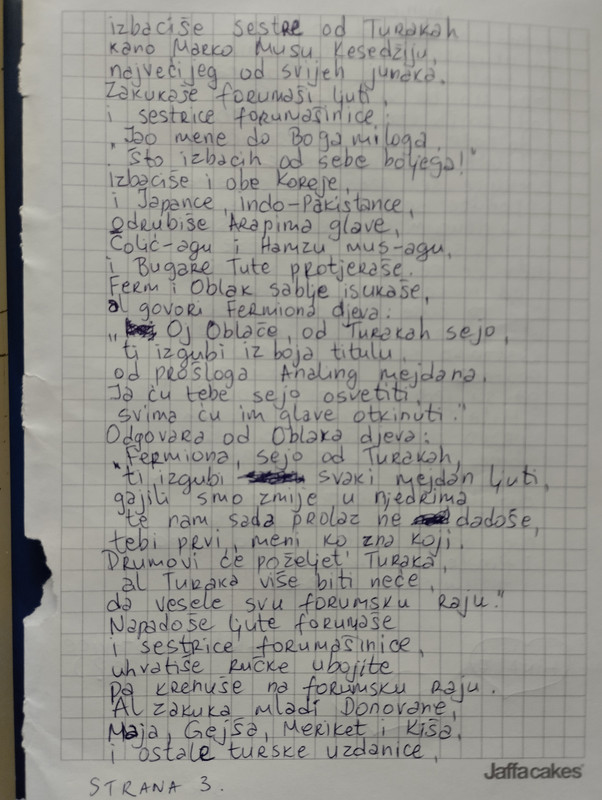 izbaciše sestre od Turakah
kano Marko Musu Kesedžiju,
najvećijeg od svijeh junaka.
Zakukaše forumaši ljuti,
i sestrice forumašinice:
"Jao mene do Boga miloga,
što izbacih od sebe boljega!"
Izbaciše i obe Koreje,
i Japance, Indo-Pakistance,
odrubiše Arapima glave,
Čolić-agu i Hamzu mus-agu,
i Bugare Tute protjeraše.
Ferm i Oblak sablje isukaše,
al govori Fermiona djeva:
"Oj Oblače, od Turakah sejo,
ti izgubi iz boja titulu,
od prošloga Analing mejdana.
Ja ću tebe sejo osvetiti,
svima ću im glave otkinuti."
Odgovara od Oblaka djeva:
"Fermiona, sejo od Turakah,
ti izgubi svaki mejdan ljuti,
gajili smo zmije u njedrima
te nam sada prolaz ne dadoše,
tebi prvi, meni ko zna koji.
Drumovi će poželjet' Turaka,
al Turaka više biti neće,
da vesele svu forumsku raju."
Napadoše ljute forumaše
i sestrice forumašinice,
uhvatiše ručke ubojite
pa krenuše na forumsku raju.
Al zakuka mladi Donovane,
Maja, Gejša, Meriket i Kiša,
i ostale turske uzdanice,
STRANA 3.
Jaffacakes